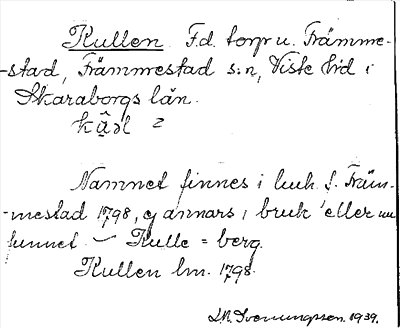 Kullen. F.d. torp u. Främme-
-stad, Främmestad s:n, Viste hd i
Skaraborgs län.
2
Namnet finnes i husk. f. Främ-
-mestad 1798, ej annars i bruk eller nu
funnet. – Kulle = berg.
Kullen hm. 1798.
1939.